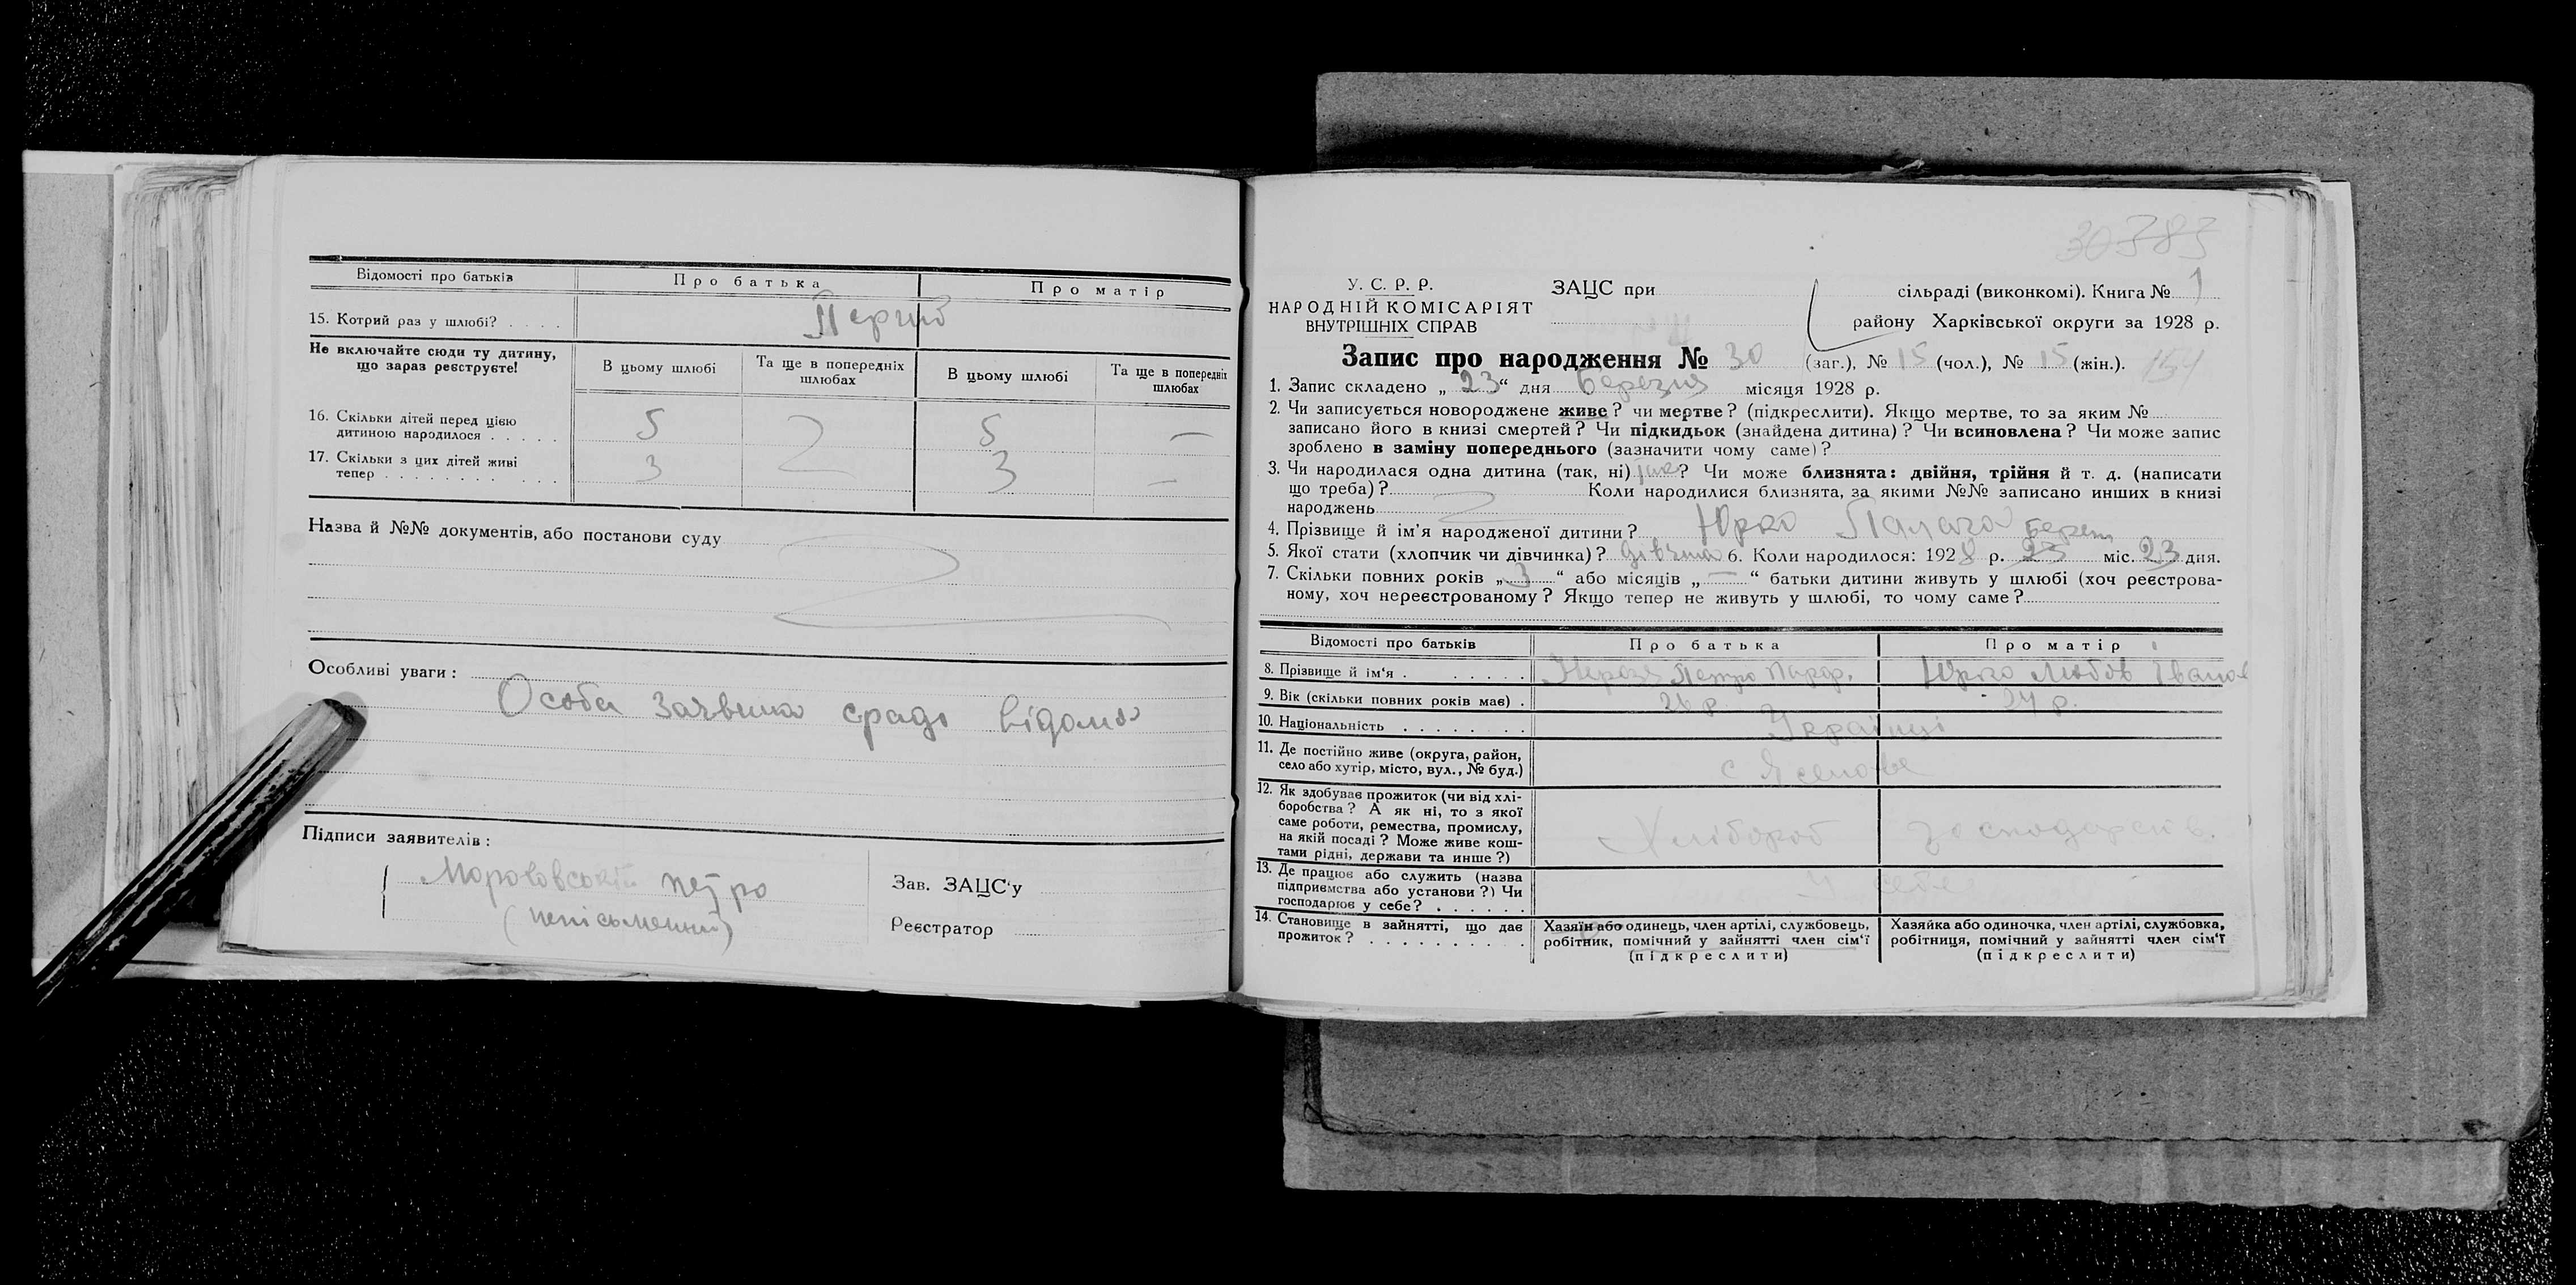 Відомості про батьків Про батька Про матір
15. Котрий раз у шлюбі? . . . . Перший
Не включайте сюди ту дитину, що зараз реєструєте!
В цьому шлюбі Та ще в попередніх шлюбах В цьому шлюбі Та ще в попередніх шлюбах
16. Скільки дітей перед цією
дитиною народилося . . . . . 5 5 —
17. Скільки з цих дітей живі
тепер . . . . . . . . . . . 3 3 —
Назва й №№ документів, або постанови суду
Особливі уваги:
Особа заявника сраді відома
Підписи заявителів:
Петро
(неписьменний)
Зав. ЗАЦС'у
Реєстратор
30383
У. С. Р. Р.
НАРОДНІЙ КОМІСАРІЯТ
ВНУТРІШНІХ СПРАВ
ЗАЦС при сільраді (виконкомі). Книга № 1
району Харківської округи за 1928 р.
Запис про народження № 30 (заг.), № 15 (чол.), № 15 (жін.). 154
1. Запис складено „ 23 “ дня Березня місяця 1928 р.
2. Чи записується новороджене живе? чи мертве? (підкреслити). Якщо мертве, то за яким №
записано його в книзі смертей? Чи підкидьок (знайдена дитина)? Чи всиновлена? Чи може запис
зроблено в заміну попереднього (зазначити чому саме)?
3. Чи народилася одна дитина (так, ні) так? Чи може близнята: двійня, трійня й т. д. (написати
що треба)? Коли народилися близнята, за якими №№ записано инших в книзі
народжень
4. Прізвище й ім'я народженої дитини? Юрко
5. Якої стати (хлопчик чи дівчинка)? дівчина 6. Коли народилося: 1928 р. 23 Берез міс. 23 дня.
7. Скільки повних років „ 3 “ або місяців „ — “ батьки дитини живуть у шлюбі (хоч реєстрова-
ному, хоч нереєстрованому? Якщо тепер не живуть у шлюбі, то чому саме?
Відомості про батьків Про батька Про матір
8. Прізвище й ім'я . . . . . . Петро Юрко Любов Іванов
9. Вік (скільки повних років має) . 24 р.
10. Національність . . . . . . . . Українці
11. Де постійно живе (округа, район,
село або хутір, місто, вул., № буд.) с
12. Як здобуває прожиток (чи від хлі-
боробства? А як ні, то з якої
саме роботи, ремества, промислу,
на якій посаді? Може живе кош-
тами рідні, держави та инше?) Хлібороб господарств.
13. Де працює або служить (назва
підприємства або установи?) Чи
господарює у себе? . . . . . . У себе
14. Становище в зайнятті, що дає
прожиток? . . . . . . . . . .
Хазяїн або одинець, член артілі, службовець,
робітник, помічний у зайнятті член сім'ї
(підкреслити)
Хазяйка або одиночка, член артілі, службовка,
робітниця, помічний у зайнятті член сім'ї
(підкреслити)